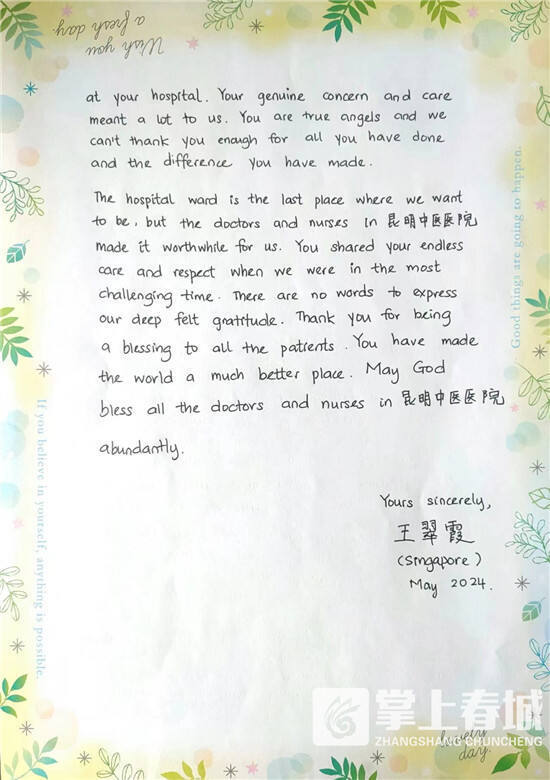 Wish you
a fresh day.
at your hospital. Your genuine concern and care
meant a lot to us. You are true angels and we
can't thank you enough for all you have done
and the difference you have made.
The hospital ward is the last place where we want
to be, but the doctors and nurses in 昆明中医医院
made it worthwhile for us. You shared your endless
care and respect when we were in the most
challenging time. There are no words to express
our deep felt gratitude. Thank you for being
a blessing to all the patients. You have made
the world a much better place. May God
bless all the doctors and nurses in 昆明中医医院
abundantly.
Yours sincerely,
王翠霞
(Singapore)
May 2024.
Good things are going to happen.
If you believe in yourself, anything is possible.
lovely
day.
掌上春城
ZHANGSHANG CHUNCHENG